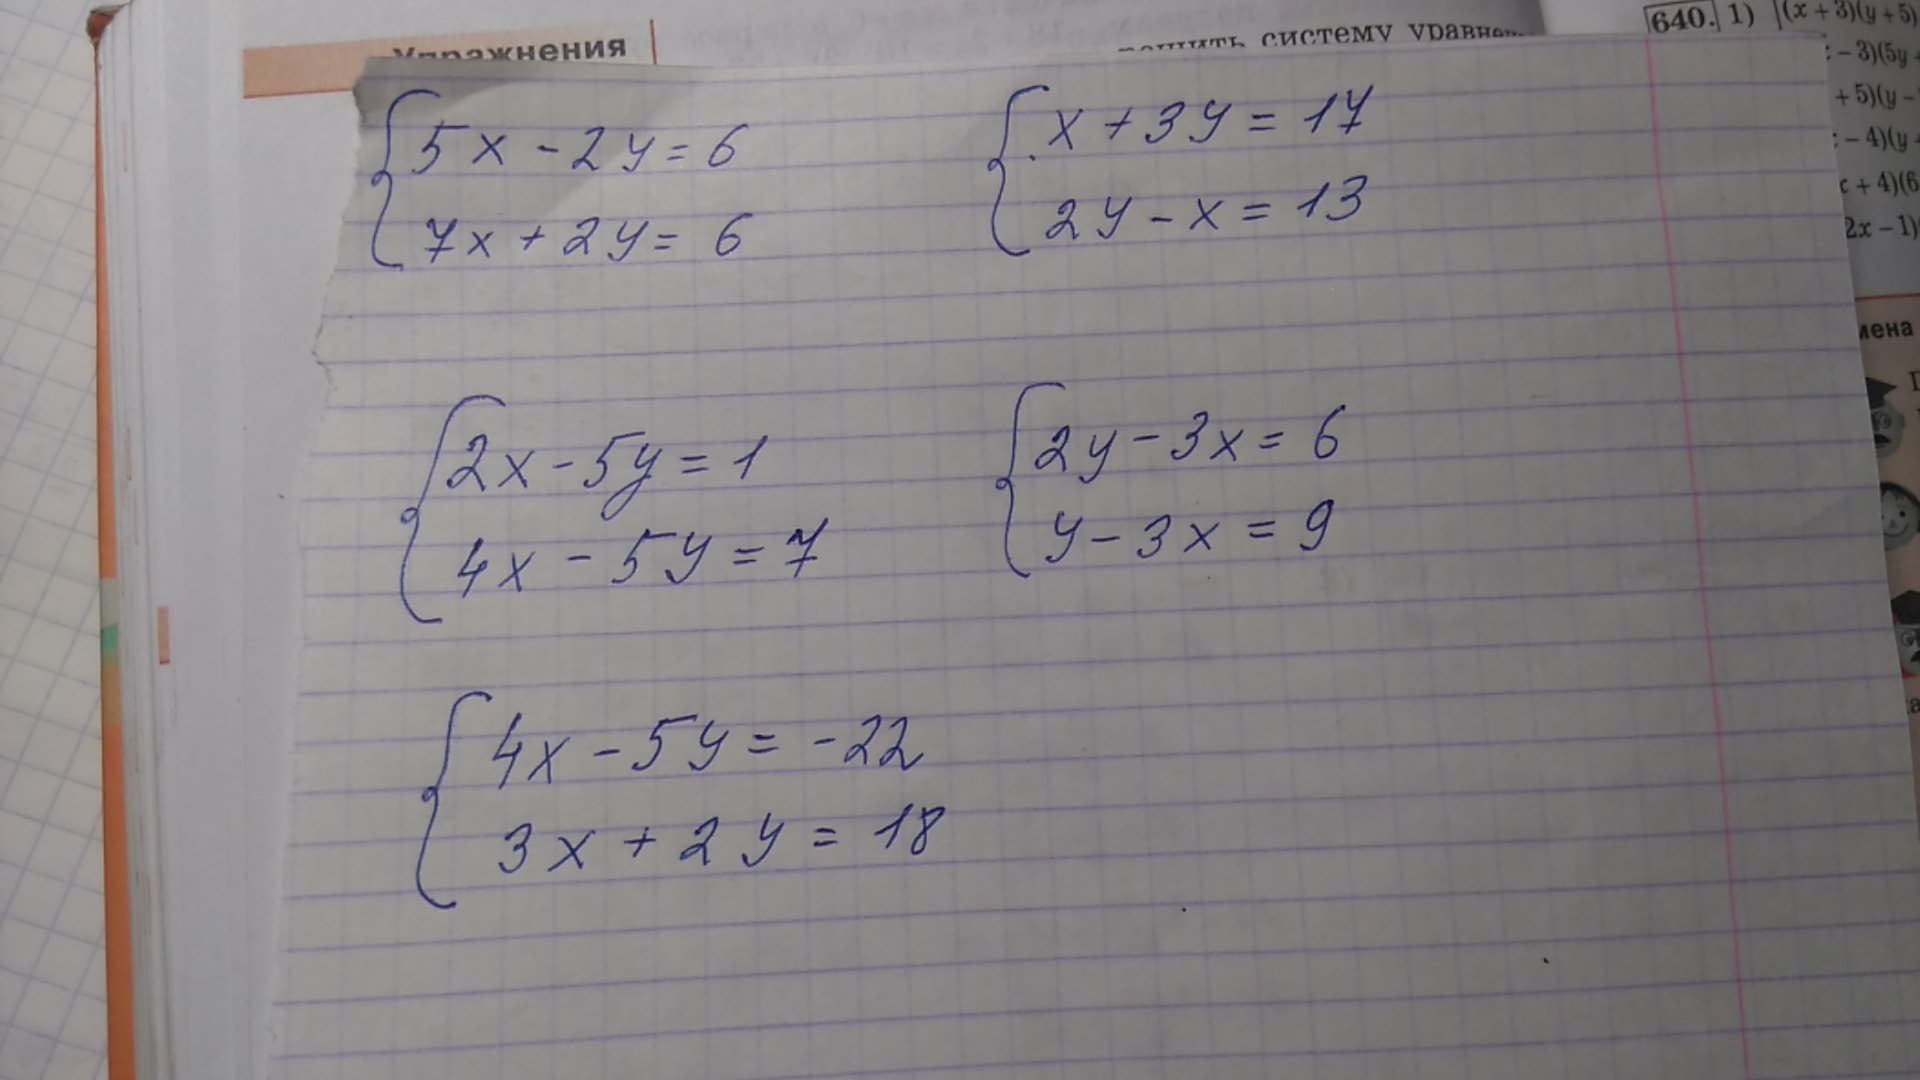 Упражнения
решить систему уравнен
640. 1) (x + 3)(y + 5)
- 3)(5y
+ 5)(y -
- 4)(y
x + 4)(6
2x - 1)
мена
5x - 2y = 6
7x + 2y = 6
x + 3y = 17
2y - x = 13
2x - 5y = 1
4x - 5y = 7
2y - 3x = 6
y - 3x = 9
4x - 5y = -22
3x + 2y = 18